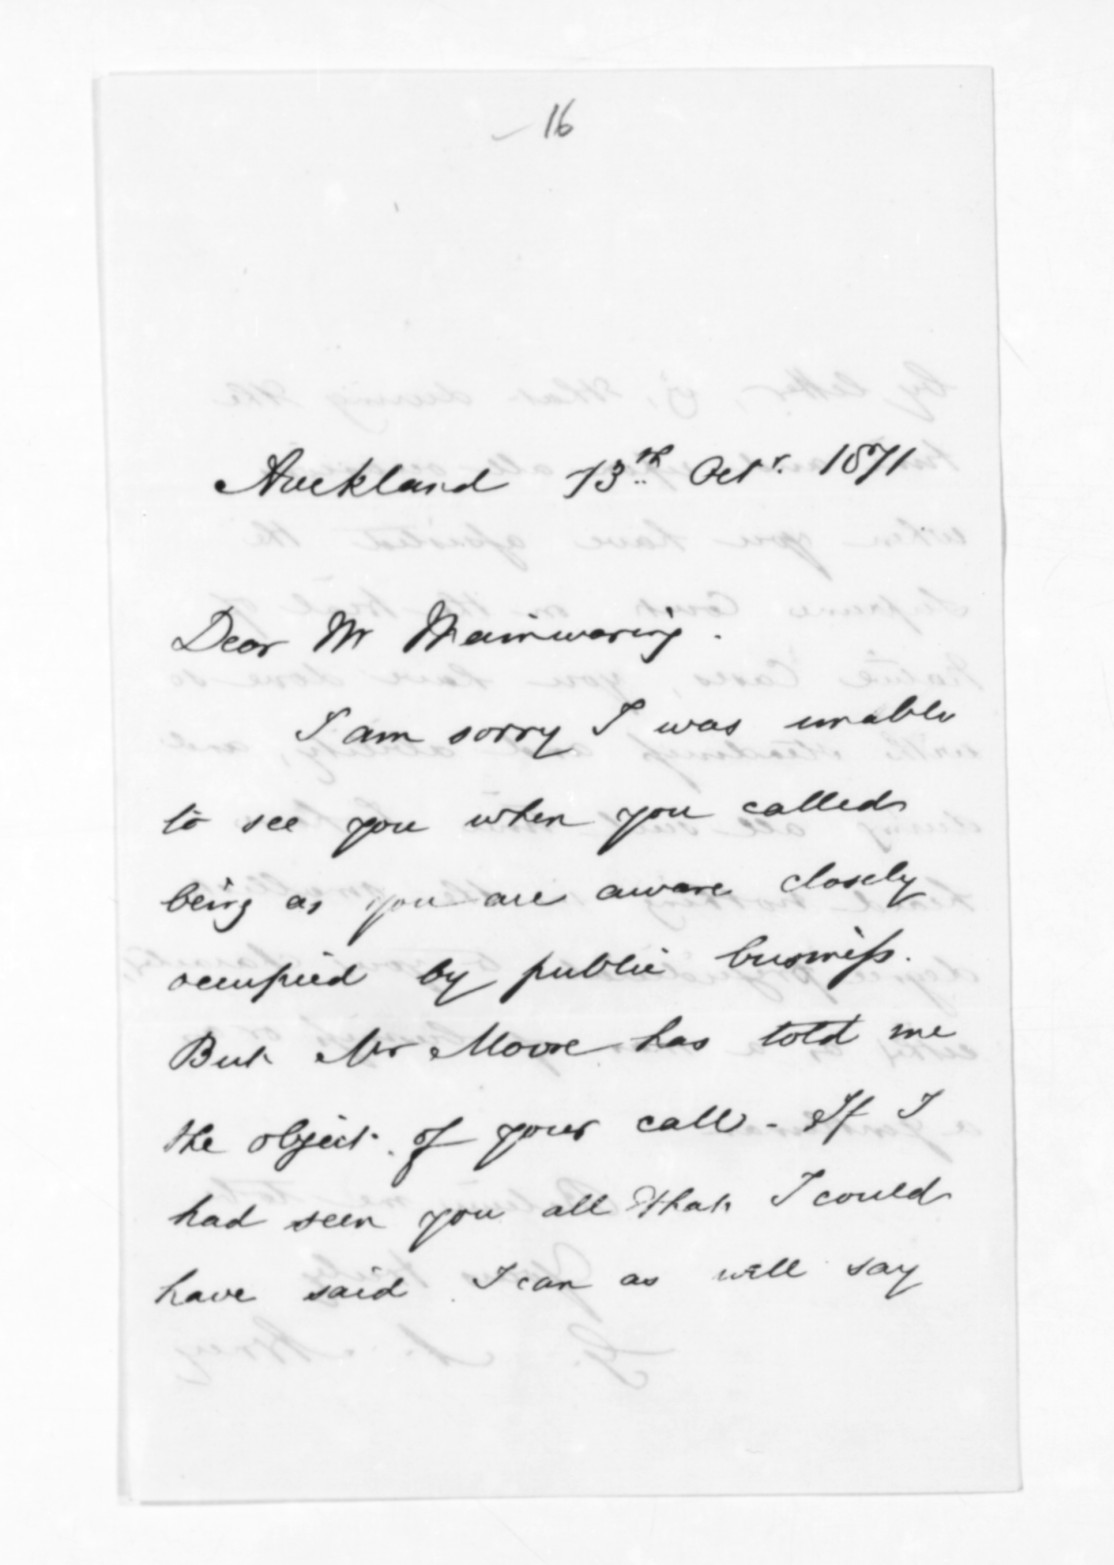 16
Auckland 13th Octr. 1871
Dear Mr Mainwaring.
I am sorry I was unable
to see you when you called
being as you are aware closely
occupied by public business.
But Mr Moore has told me
the object of your call - If I
had seen you all that I could
have said I can as well say